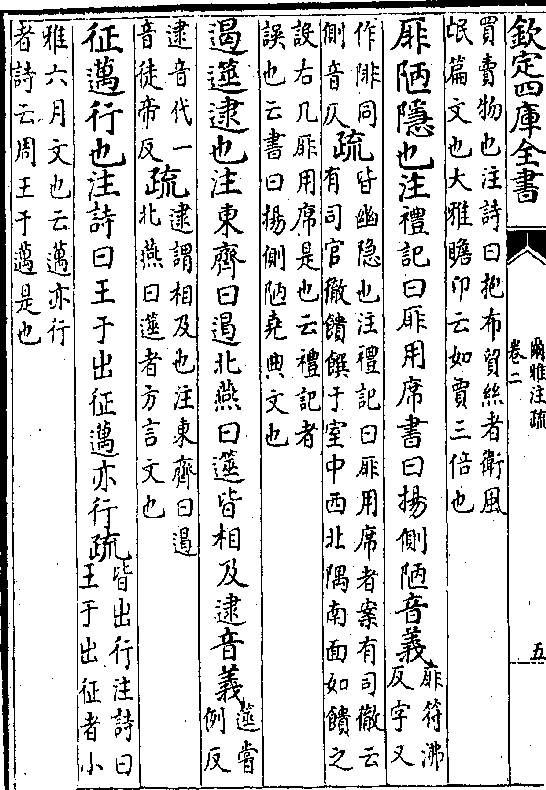 欽定四庫全書
爾雅注疏
卷二
五
買賣物也注詩曰抱布貿絲者衛風
氓篇文也大雅瞻卬云如賈三倍也
厞陋隱也注禮記曰厞用席書曰揚側陋音義
厞符沸
反字又
作陫同
側音仄
疏
皆幽隐也注禮記曰厞用席者案有司徹云
有司官徹饋饌于室中西北隅南面如饋之
設右几厞用席是也云禮記者
誤也云書曰揚側陋堯典文也
遏遾逮也注東齊曰遏北燕曰遾皆相及逮音義
遾嘗
例反
逮音代一
音徒帝反
疏
逮謂相及也注東齊曰遏
北燕曰遾者方言文也
征邁行也注詩曰王于出征邁亦行疏
皆出行注詩曰
王于出征者小
雅六月文也云邁亦行
者詩云周王于邁是也